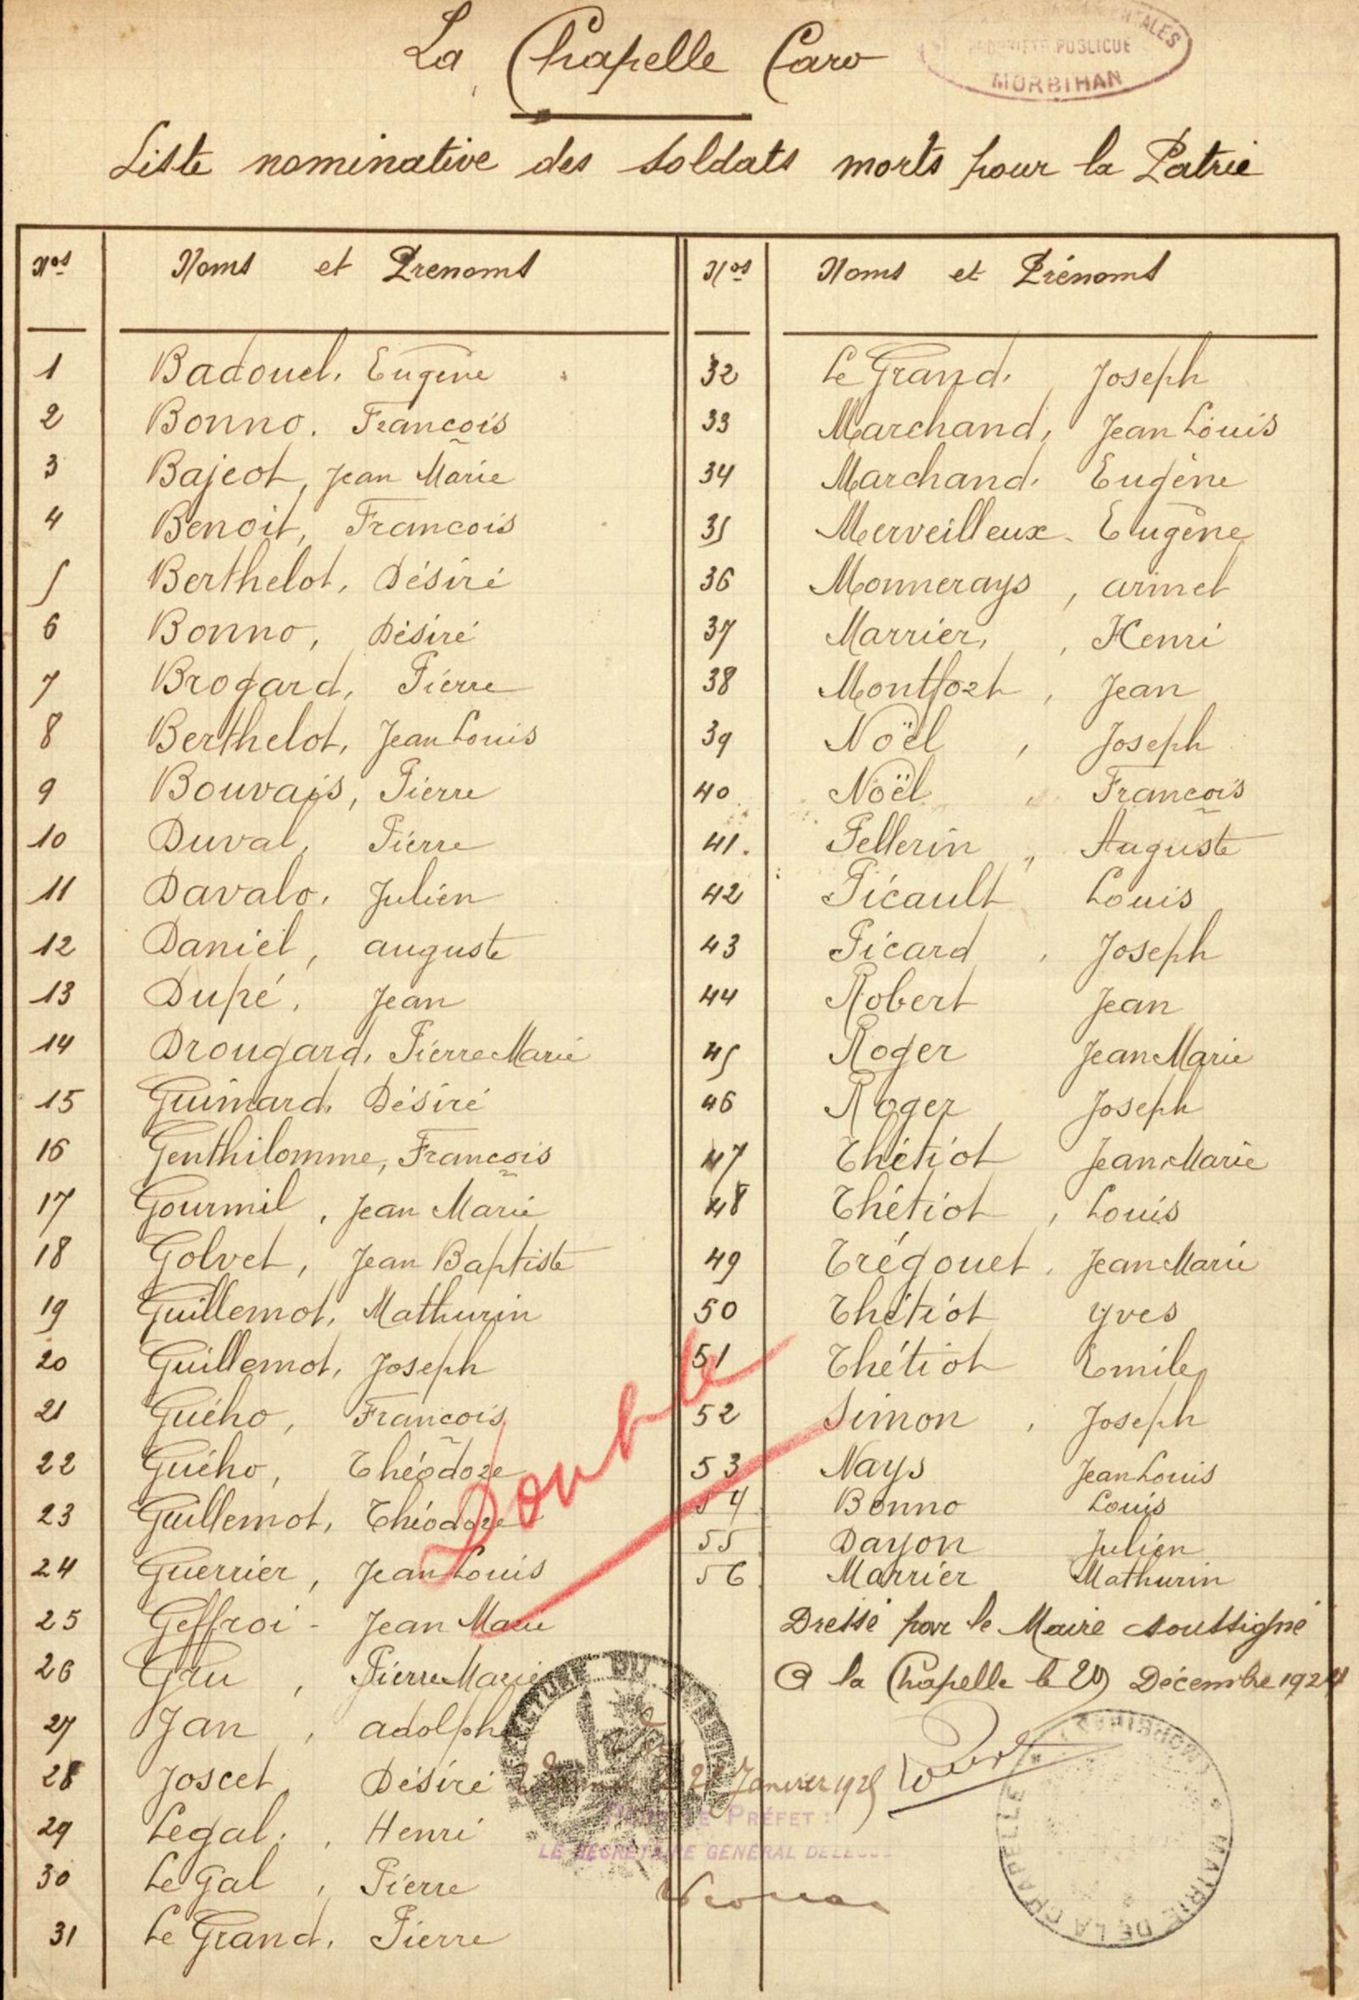 La Chapelle Caro
PROPRIÉTÉ PUBLIQUE
MORBIHAN
Liste nominative des soldats morts pour la Patrie
Nos Noms et Prenoms
1 Badouel, Eugène
2 Bonno, François
3 Bajeot, Jean Marie
4 Benoit, Francois
5 Berthelot, Désiré
6 Bonno, Désiré
7 Brogard, Pierre
8 Berthelot, Jean Louis
9 Bouvais, Pierre
10 Duval, Pierre
11 Davalo, Julien
12 Daniel, auguste
13 Dupé, Jean
14 Drougard, Pierre Marie
15 Guimard, Désiré
16 Genthilomme, François
17 Gourmil, Jean Marie
18 Golvet, Jean Baptiste
19 Guillemot, Mathurin
20 Guillemot, Joseph
21 Guého, François
22 Guého, Théodore
23 Guillemot, Théodore
24 Guerrier, Jean Louis
25 Geffroi - Jean Marie
26 Gru, Pierre Marie
27 Jan, adolphe
28 Joscet, Désiré
29 Legal, Henri
30 Le Gal, Pierre
31 Le Grand, Pierre
Nos Noms et Prénoms
32 Le Grand, Joseph
33 Marchand, Jean Louis
34 Marchand, Eugène
35 Merveilleux, Eugène
36 Monnerays, armel
37 Marrier, Henri
38 Montfort, Jean
39 Noël, Joseph
40 Noël, François
41. Pellerin, Auguste
42 Picault Louis
43 Picard, Joseph
44 Robert Jean
45 Roger Jean Marie
46 Roger Joseph
47 Thétiot Jean Marie
48 Thétiot, Louis
49 Trégouet, Jean Marie
50 Thétiot yves
51 Thétiot Emile
52 Simon, Joseph
53 Nays Jean Louis
54 Bonno Louis
55 Dayon Julien
56 Marrier Mathurin
Double
Dressé par le Maire soussigné
A la Chapelle le 20 Décembre 1924
Janvier 1925
PRÉFET :
LE SECRÉTAIRE GÉNÉRAL DÉLÉGUÉ
MAIRIE DE LA CHAPELLE * (MORBIHAN) *